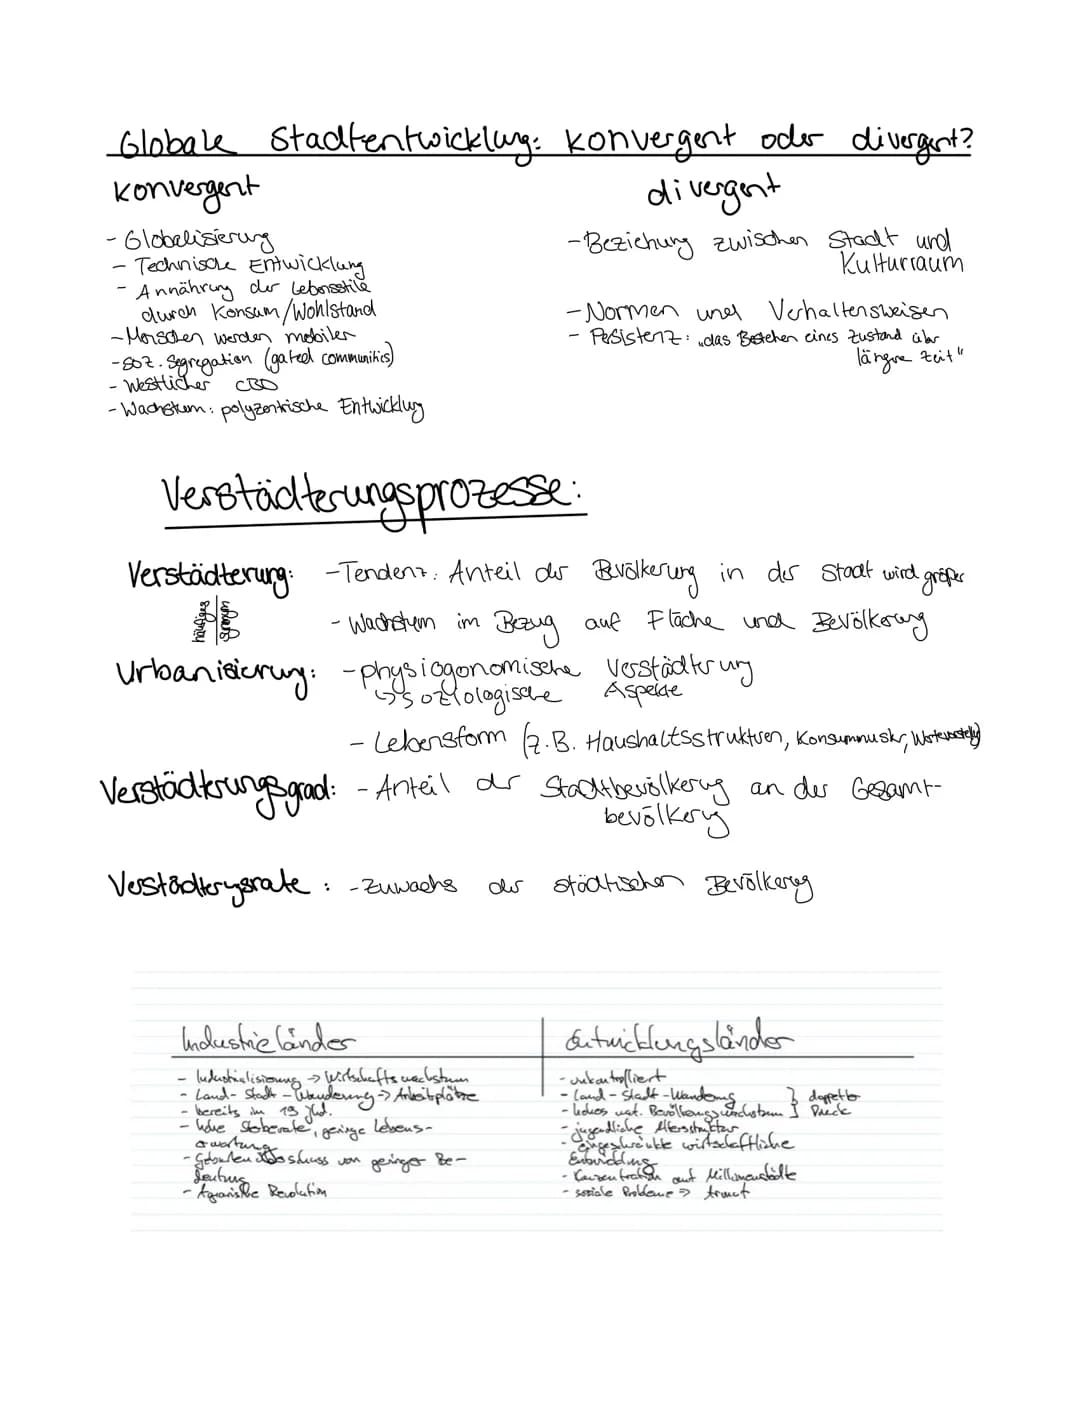 Globale Stadtentwicklung: konvergent oder divergent?
konvergent
- Globalisierung
- Technische Entwicklung
- Annährung der Lebensstile
durch Konsum/Wohlstand
- Menschen werden mobiler
- soz. Segregation (gated communitis)
- Westlicher CBD
- Wachstum: polyzentrische Entwicklung
divergent
- Beziehung zwischen Stadt und
Kulturraum
- Normen und Verhaltensweisen
- Persistenz: „das Bestehen eines Zustand über
längere Zeit"
Verstädterungsprozesse:
Verstädterung: - Tendenz: Anteil der Bevölkerung in der Stadt wird größer
häufiges
synonym
- Wachstum im Bezug auf Fläche und Bevölkerung
Urbanisierung: - physiogonomische Verstädterung
↳ soziologische Aspekte
- Lebensform (z.B. Haushaltsstrukturen, Konsummuster,
Verstädterungsgrad: - Anteil der Stadtbevölkerung an der Gesamt-
bevölkerung
Verstädterungsrate: - Zuwachs der städtischen Bevölkerung
Industrieländer
- Industrialisierung → Wirtschaftswachstum
- Land-Stadt-Wanderung → Arbeitsplätze
- bereits im 19 Jhd.
- hohe Sterberate, geringe Lebens-
erwartung
- Geburtenüberschuss von geringer Be-
deutung
- Agrarische Revolution
Entwicklungsländer
- unkontrolliert
- Land-Stadt-Wanderung } doppelter
- hohes nat. Bevölkerungswachstum } Druck
- jugendliche Altersstruktur
- eingeschränkte wirtschaftliche
Entwicklung
- Konzentration auf Millionenstädte
- soziale Probleme → Armut